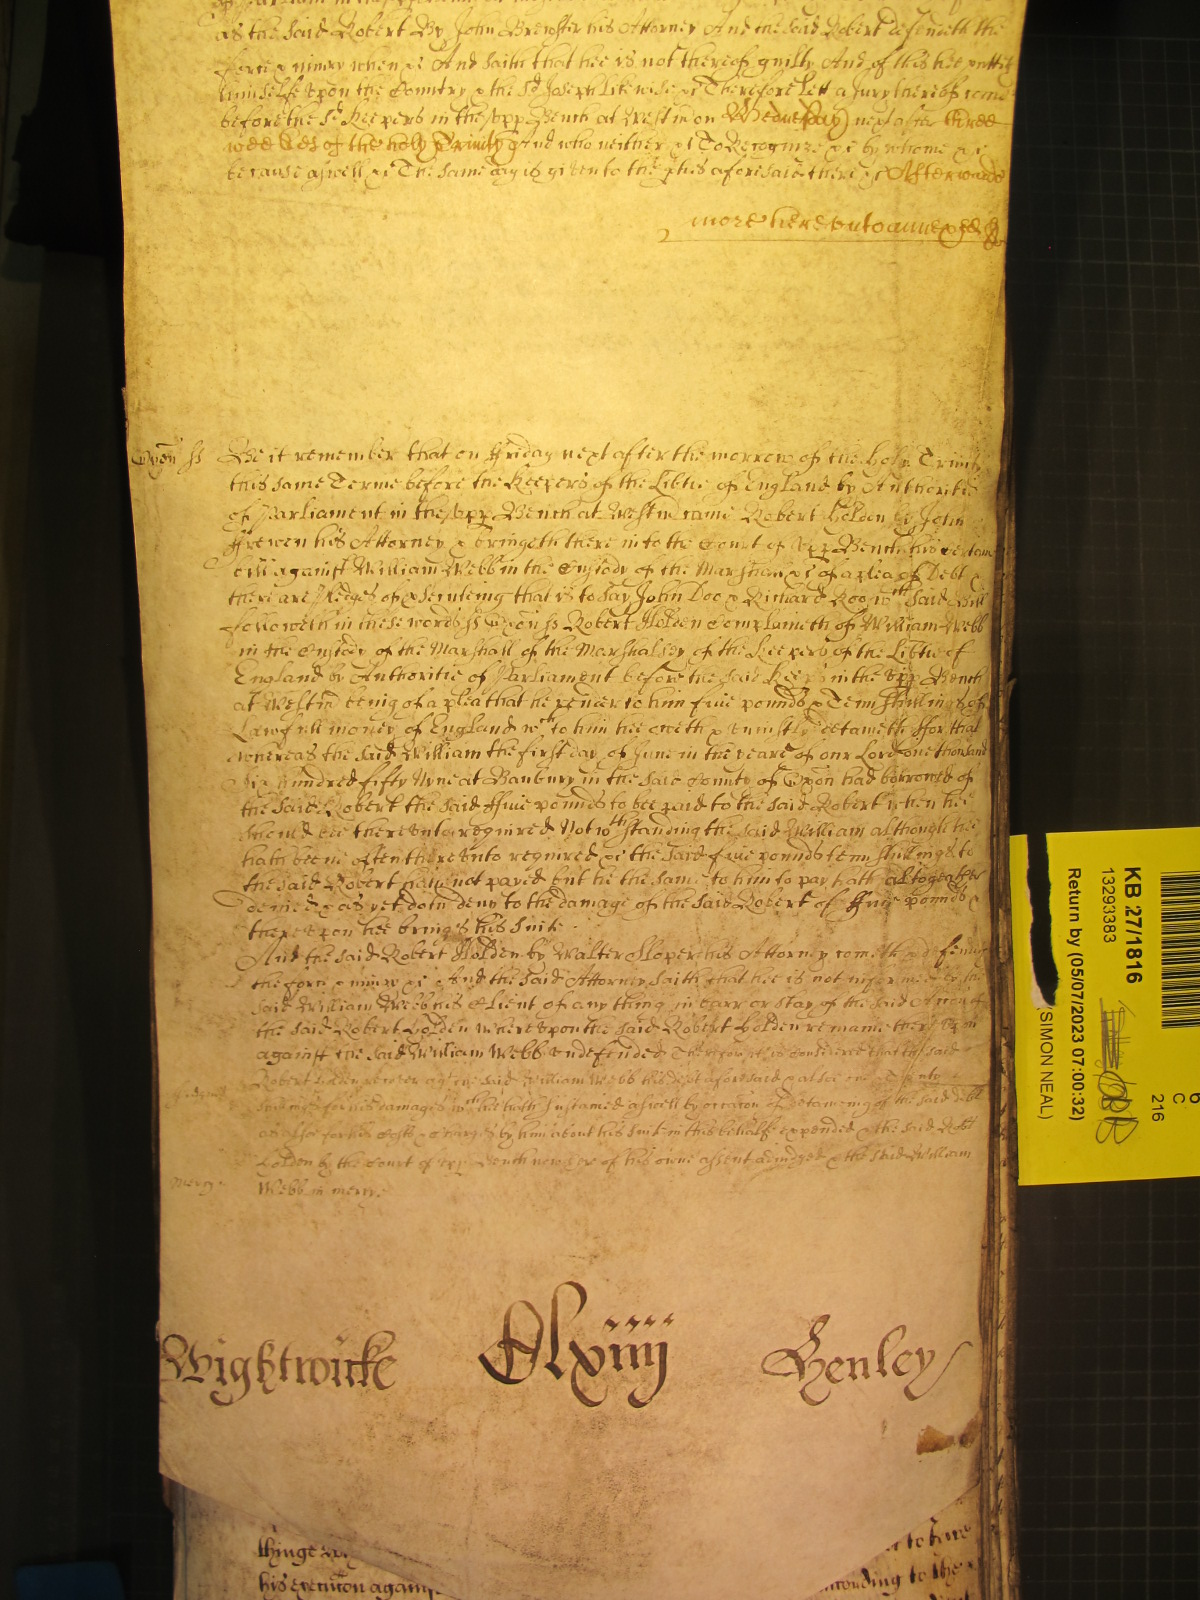 as the said Robert By John Brewster his Attorney And the said Robert defendeth the
force & iniury when &c And saith that hee is not thereof guilty And of this hee putteth
himselfe vpon the Country & the sd Joseph likewise &c Therefore lett a Jury thereof come
before the sd Keepers in the vpp Bench at Westm on Wednesday next after three
weekes of the holy Trinity And who neither &c To Recognize &c by whome &c
because aswell &c The same day is given to the pties aforesaid there &c Afterwards
more herevnto annexed
Oxon ss Be it remember that on Friday next after the morrow of the holy Trinity
this same Terme before the Keepers of the Libtie of England by Authoritie
of Parliament in the vpp Bench at Westm came Robert Holden by John
Frewen his Attorney & bringeth there into the Court of vpp Bench his certaine
bill against William Webb in the Custody of the Marshall &c of a plea of Debt &
there are Pledges of prosecuting that is to say John Doo & Richard Roo wch said Bill
followeth in these words ss Oxon ss Robert Holden Complaineth of William Webb
in the Custody of the Marshall of the Marshalsey of the Keepers of the Libtie of
England by Authoritie of Parliament before the said Keeps in the vpp Bench
at Westm being of a plea that he render to him five pounds & Tenn shillings of
Lawfull money of England wch to him hee oweth & vniustly detaineth For that
whereas the said William the first day of June in the yeare of our Lord one thousand
six hundred fifty Nyne at Banbury in the said County of Oxon had borrowed of
the said Robert the said Five pounds to bee paid to the said Robert when hee
should bee therevnto required Notwthstanding the said William although hee
hath beene often therevnto required &c the said five pounds tenn shillings to
the said Robert hath not payed but he the same to him to pay hath altogeather
denied & as yet doth deny to the damage of the said Robert of Five pounds &
therevpon hee brings this suite
And the said Robert Holden by Walter Sloper his Attorney cometh & defends
the force & iniury &c And the said Attorney saith that hee is not informed by the
said William Webb his Client of any thing in barr or stay of the said Action of
the said Robert Holden Wherevpon the said Robert Holden remaineth therevpon
against the said William Webb vndefended Therefore it is considered that the said
Judgmt Robert Holden recover agt the said William Webb his debt aforesaid & alsoe Twenty
shillings for his damages wch hee hath sustained aswell by occation of detaineing of the said debt
as alsoe for his costs & charges by him about his suite in this behalfe expended & the said Robt
Holden by the Court of vpp Bench now here of his owne assent adiudged & the said William
Mercy Webb in mercy
Wightwicke Clxiiij Henley
thinge
his execution against
KB 27/1816
13293383
Return by (05/07/2023 07:00:32)
(SIMON NEAL)
6
C
216